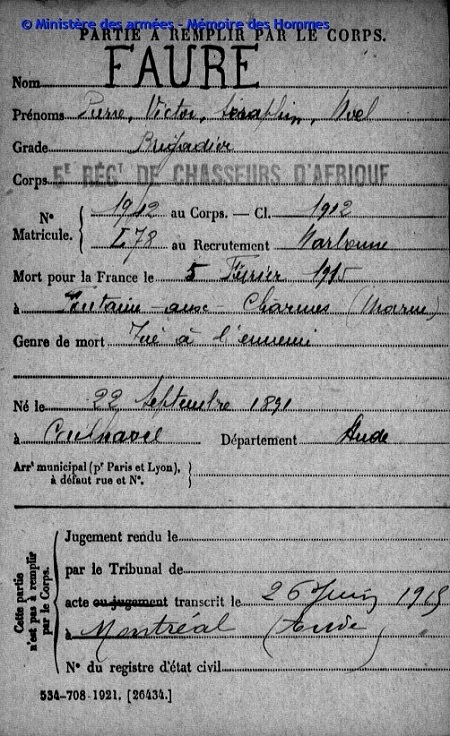 © Ministère des armées - Mémoire des Hommes
PARTIE À REMPLIR PAR LE CORPS.
FAURE
Nom
Prénoms Pierre, Victor, Séraphin, Noel
Grade Brigadier
Corps 5E RÉGT DE CHASSEURS D'AFRIQUE
No 1912 au Corps. — Cl. 1912
Matricule. 178 au Recrutement Narbonne
Mort pour la France le 5 Février 1915
à Fontaine-aux-Charmes (Marne)
Genre de mort Tué à l'ennemi
Né le 22 Septembre 1891
à Département Aude
Arrt municipal (pr Paris et Lyon),
à défaut rue et No.
Cette partie
n'est pas à remplir
par le Corps.
Jugement rendu le
par le Tribunal de
acte ou jugement transcrit le 26 Juin 1915
à Montréal (Aude)
No du registre d'état civil
534-708-1921. [26434.]